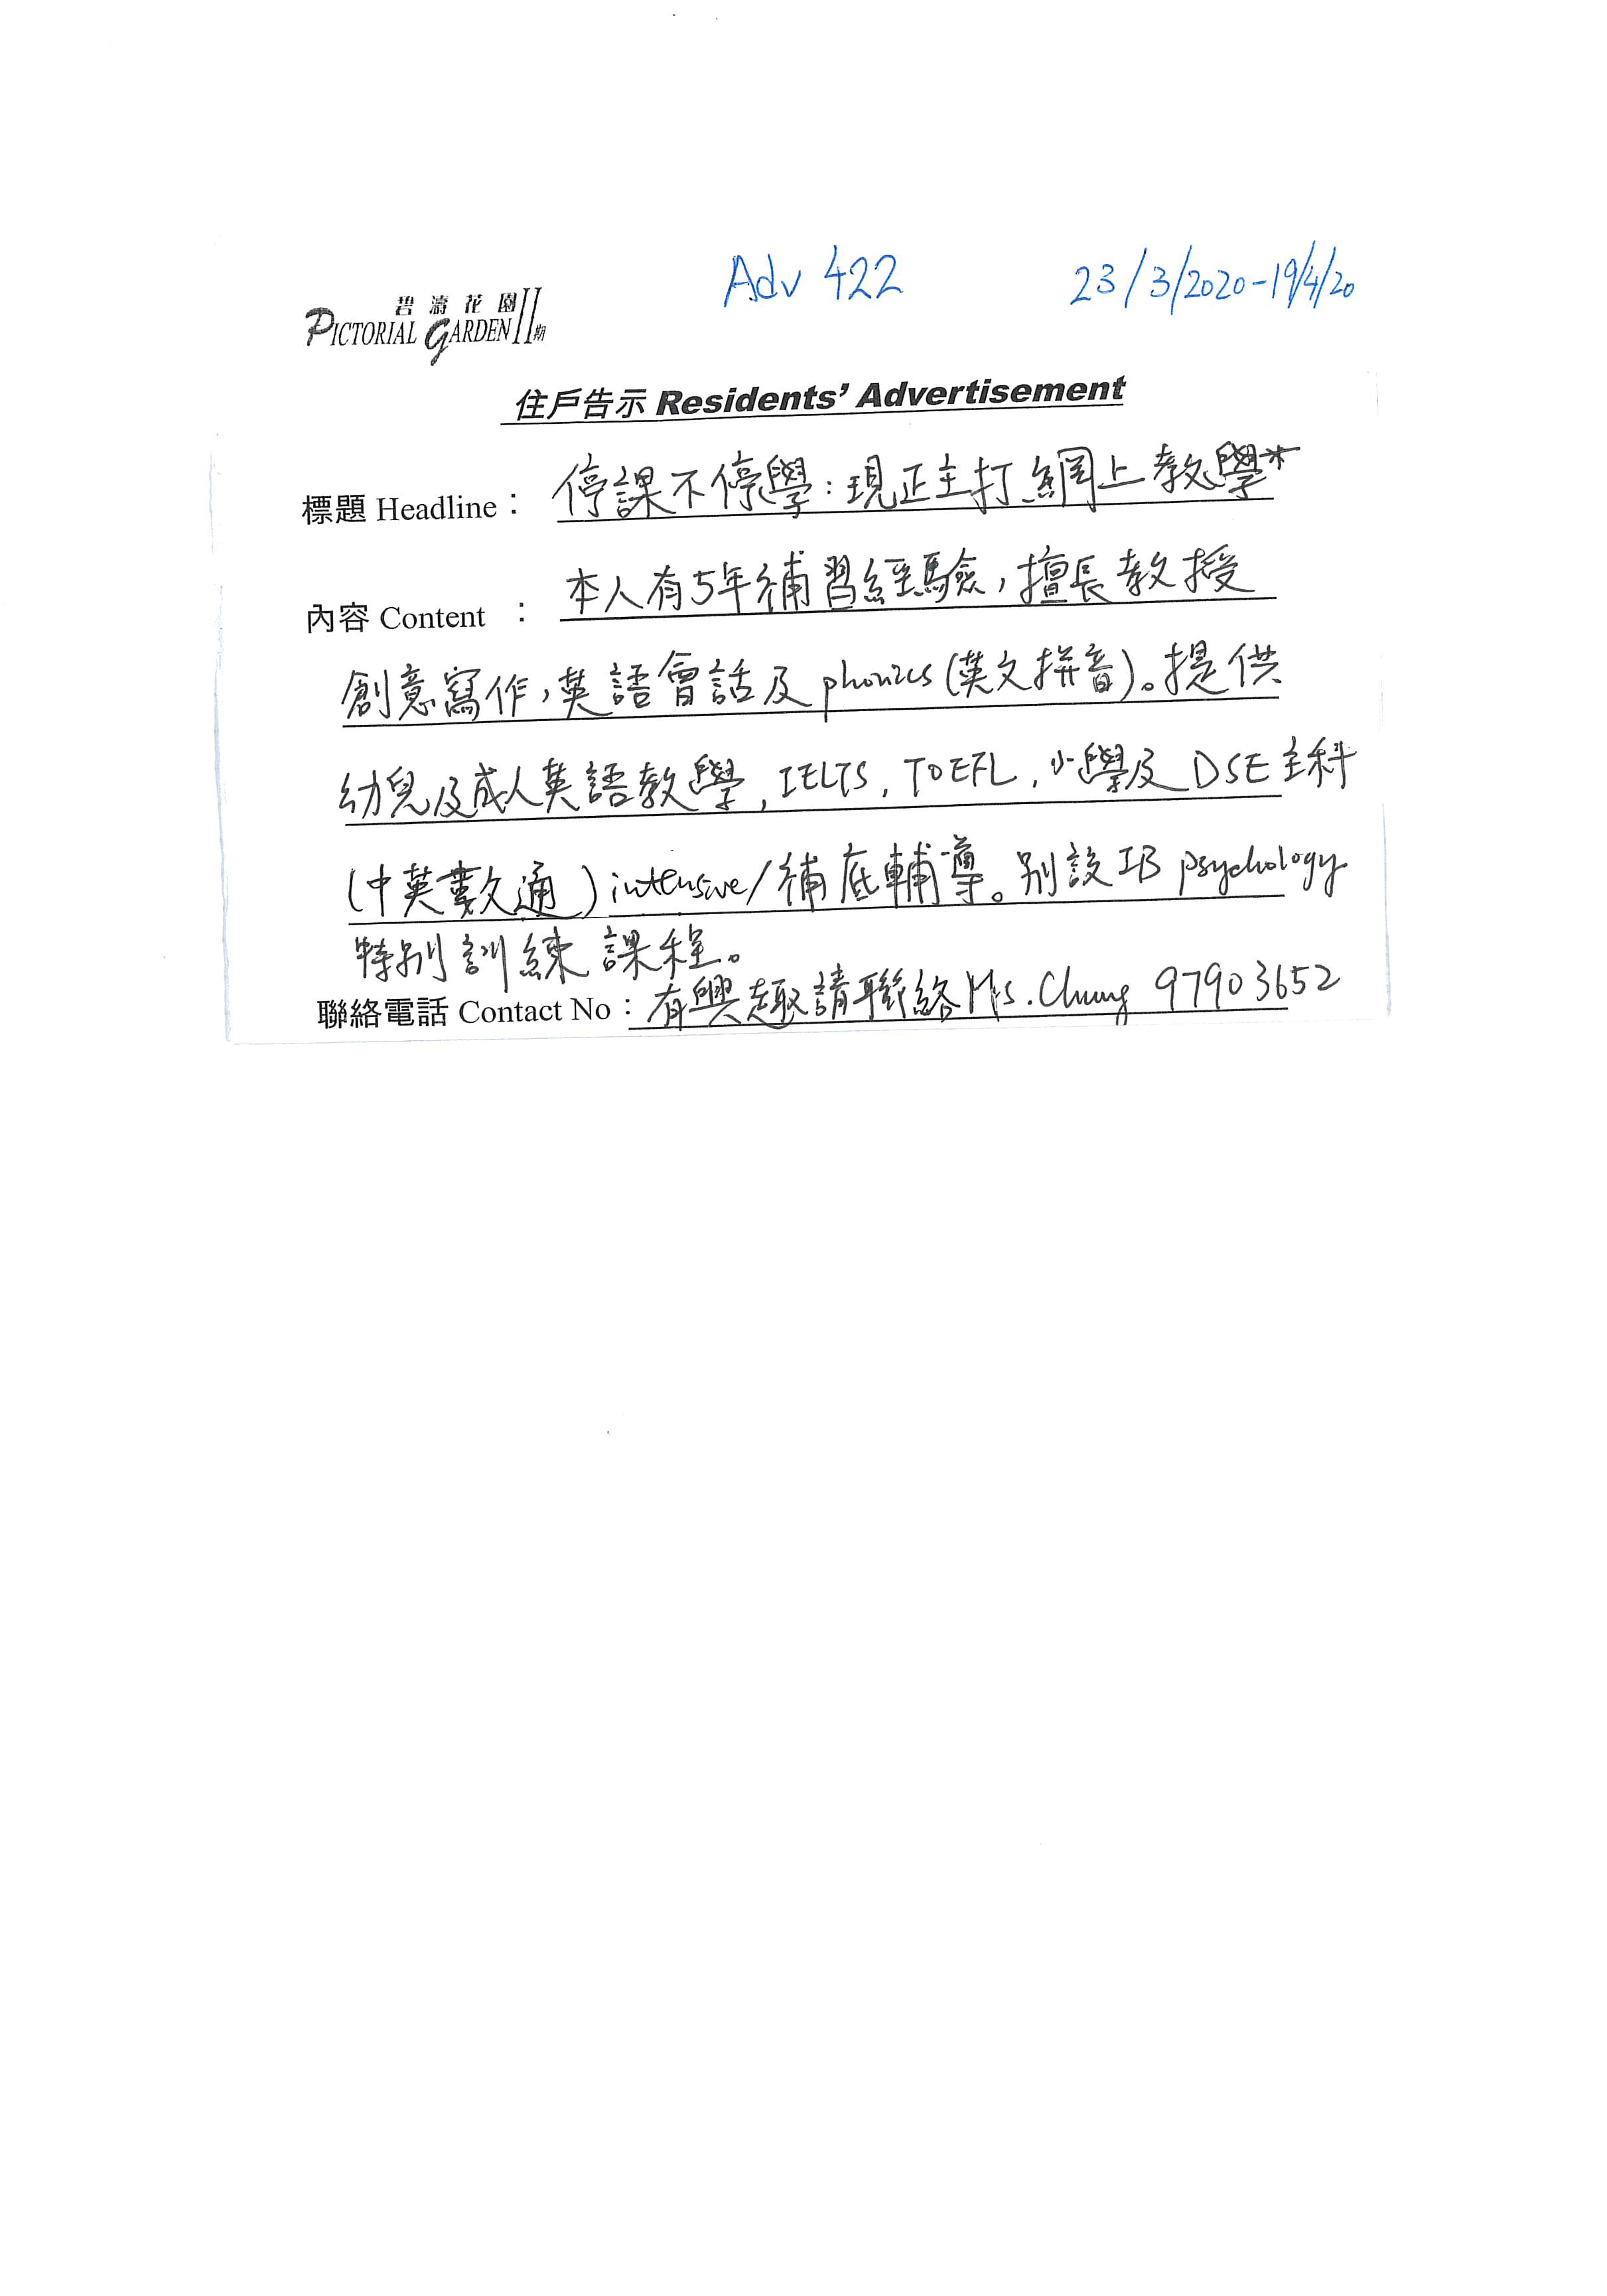 Adv 422
23/3/2020-19/4/20
碧濤花園
PICTORIAL GARDEN II期
住戶告示 Residents' Advertisement
標題 Headline： 停課不停學：現正主打網上教學*
內容 Content ： 本人有5年補習經驗，擅長教授
創意寫作，英語會話及phonics(英文拼音)。提供
幼兒及成人英語教學, IELTS, TOEFL, 小學及DSE主科
(中英數通) intensive/補底輔導。別設IB psychology
特別訓練課程。
聯絡電話 Contact No：有興趣請聯絡Ms. Chung 97903652